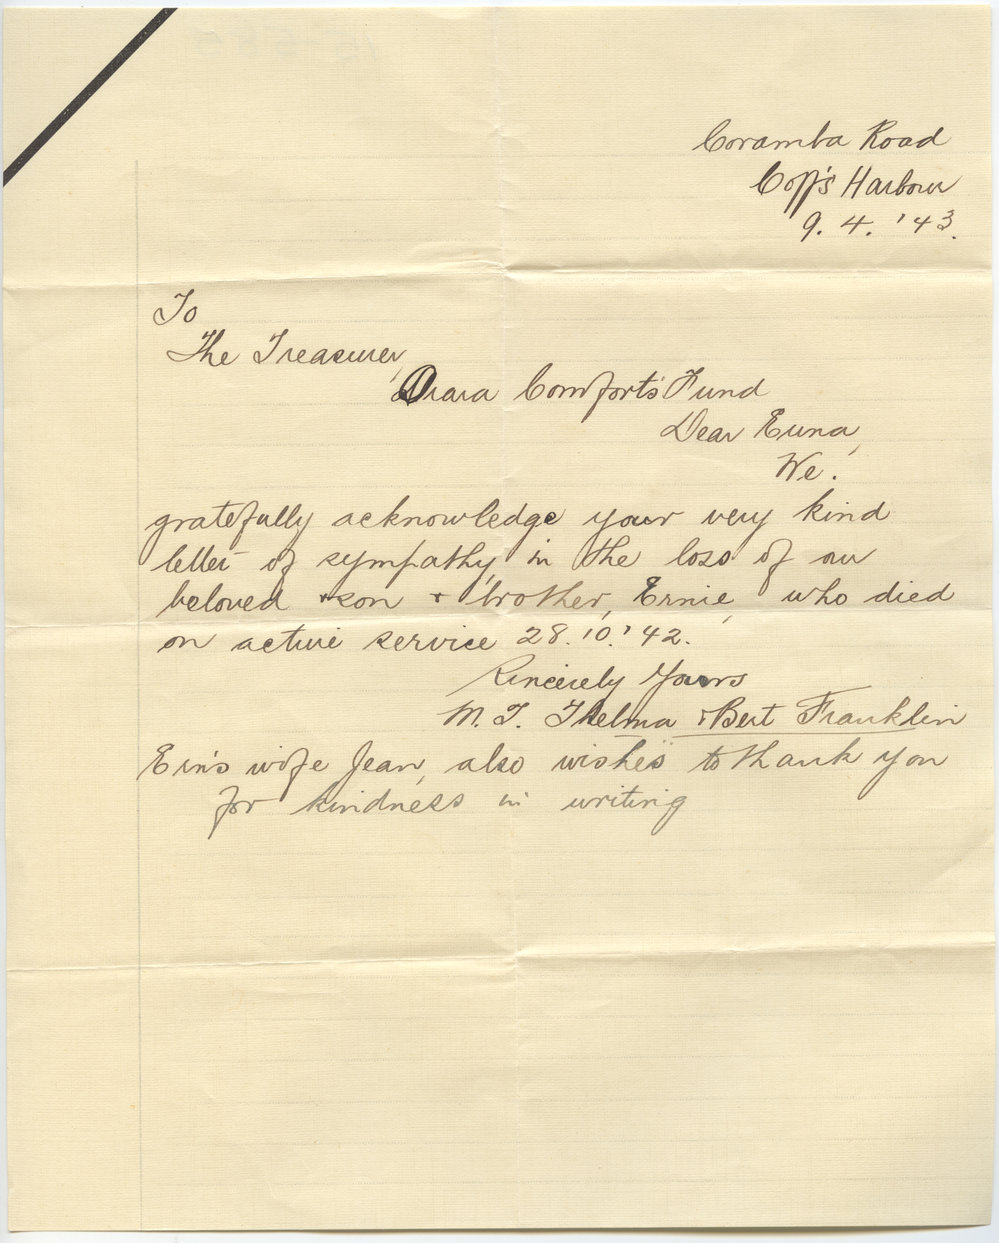 Coramba Road
Coff's Harbour
9. 4. '43.
To
The Treasurer,
Orara Comfort's Fund
Dear Euna,
We.
gratefully acknowledge your very kind
letter of sympathy, in the loss of our
beloved +son + brother, Ernie, who died
on active service 28.10.'42.
Sincerely Yours
M. T. Thelma +Bert Franklin
Ern's wife Jean, also wishes to thank you
for kindness in writing